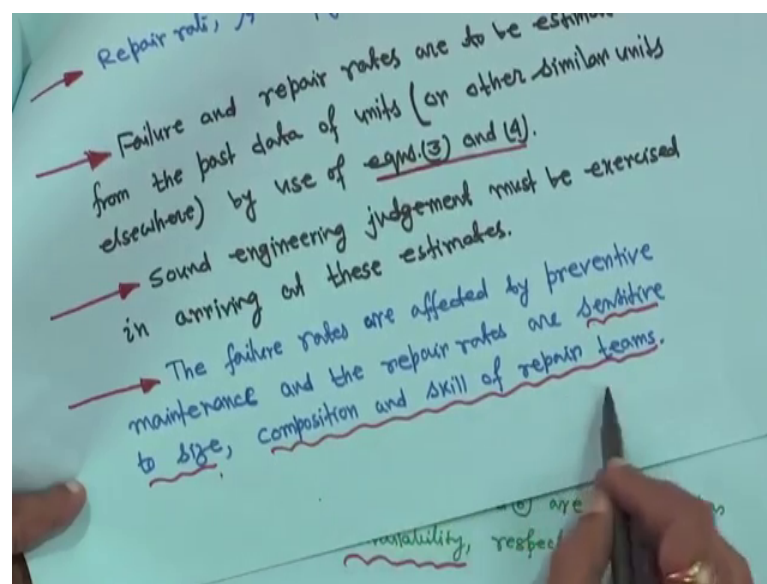 Repair
Failure and repair rates are to be
from the past data of units (or other similar units
elsewhere) by use of eqns.(3) and (4).
Sound engineering judgement must be exercised
in arriving at these estimates.
The failure rates are affected by preventive
maintenance and the repair rates are sensitive
to size, composition and skill of repair teams.
are